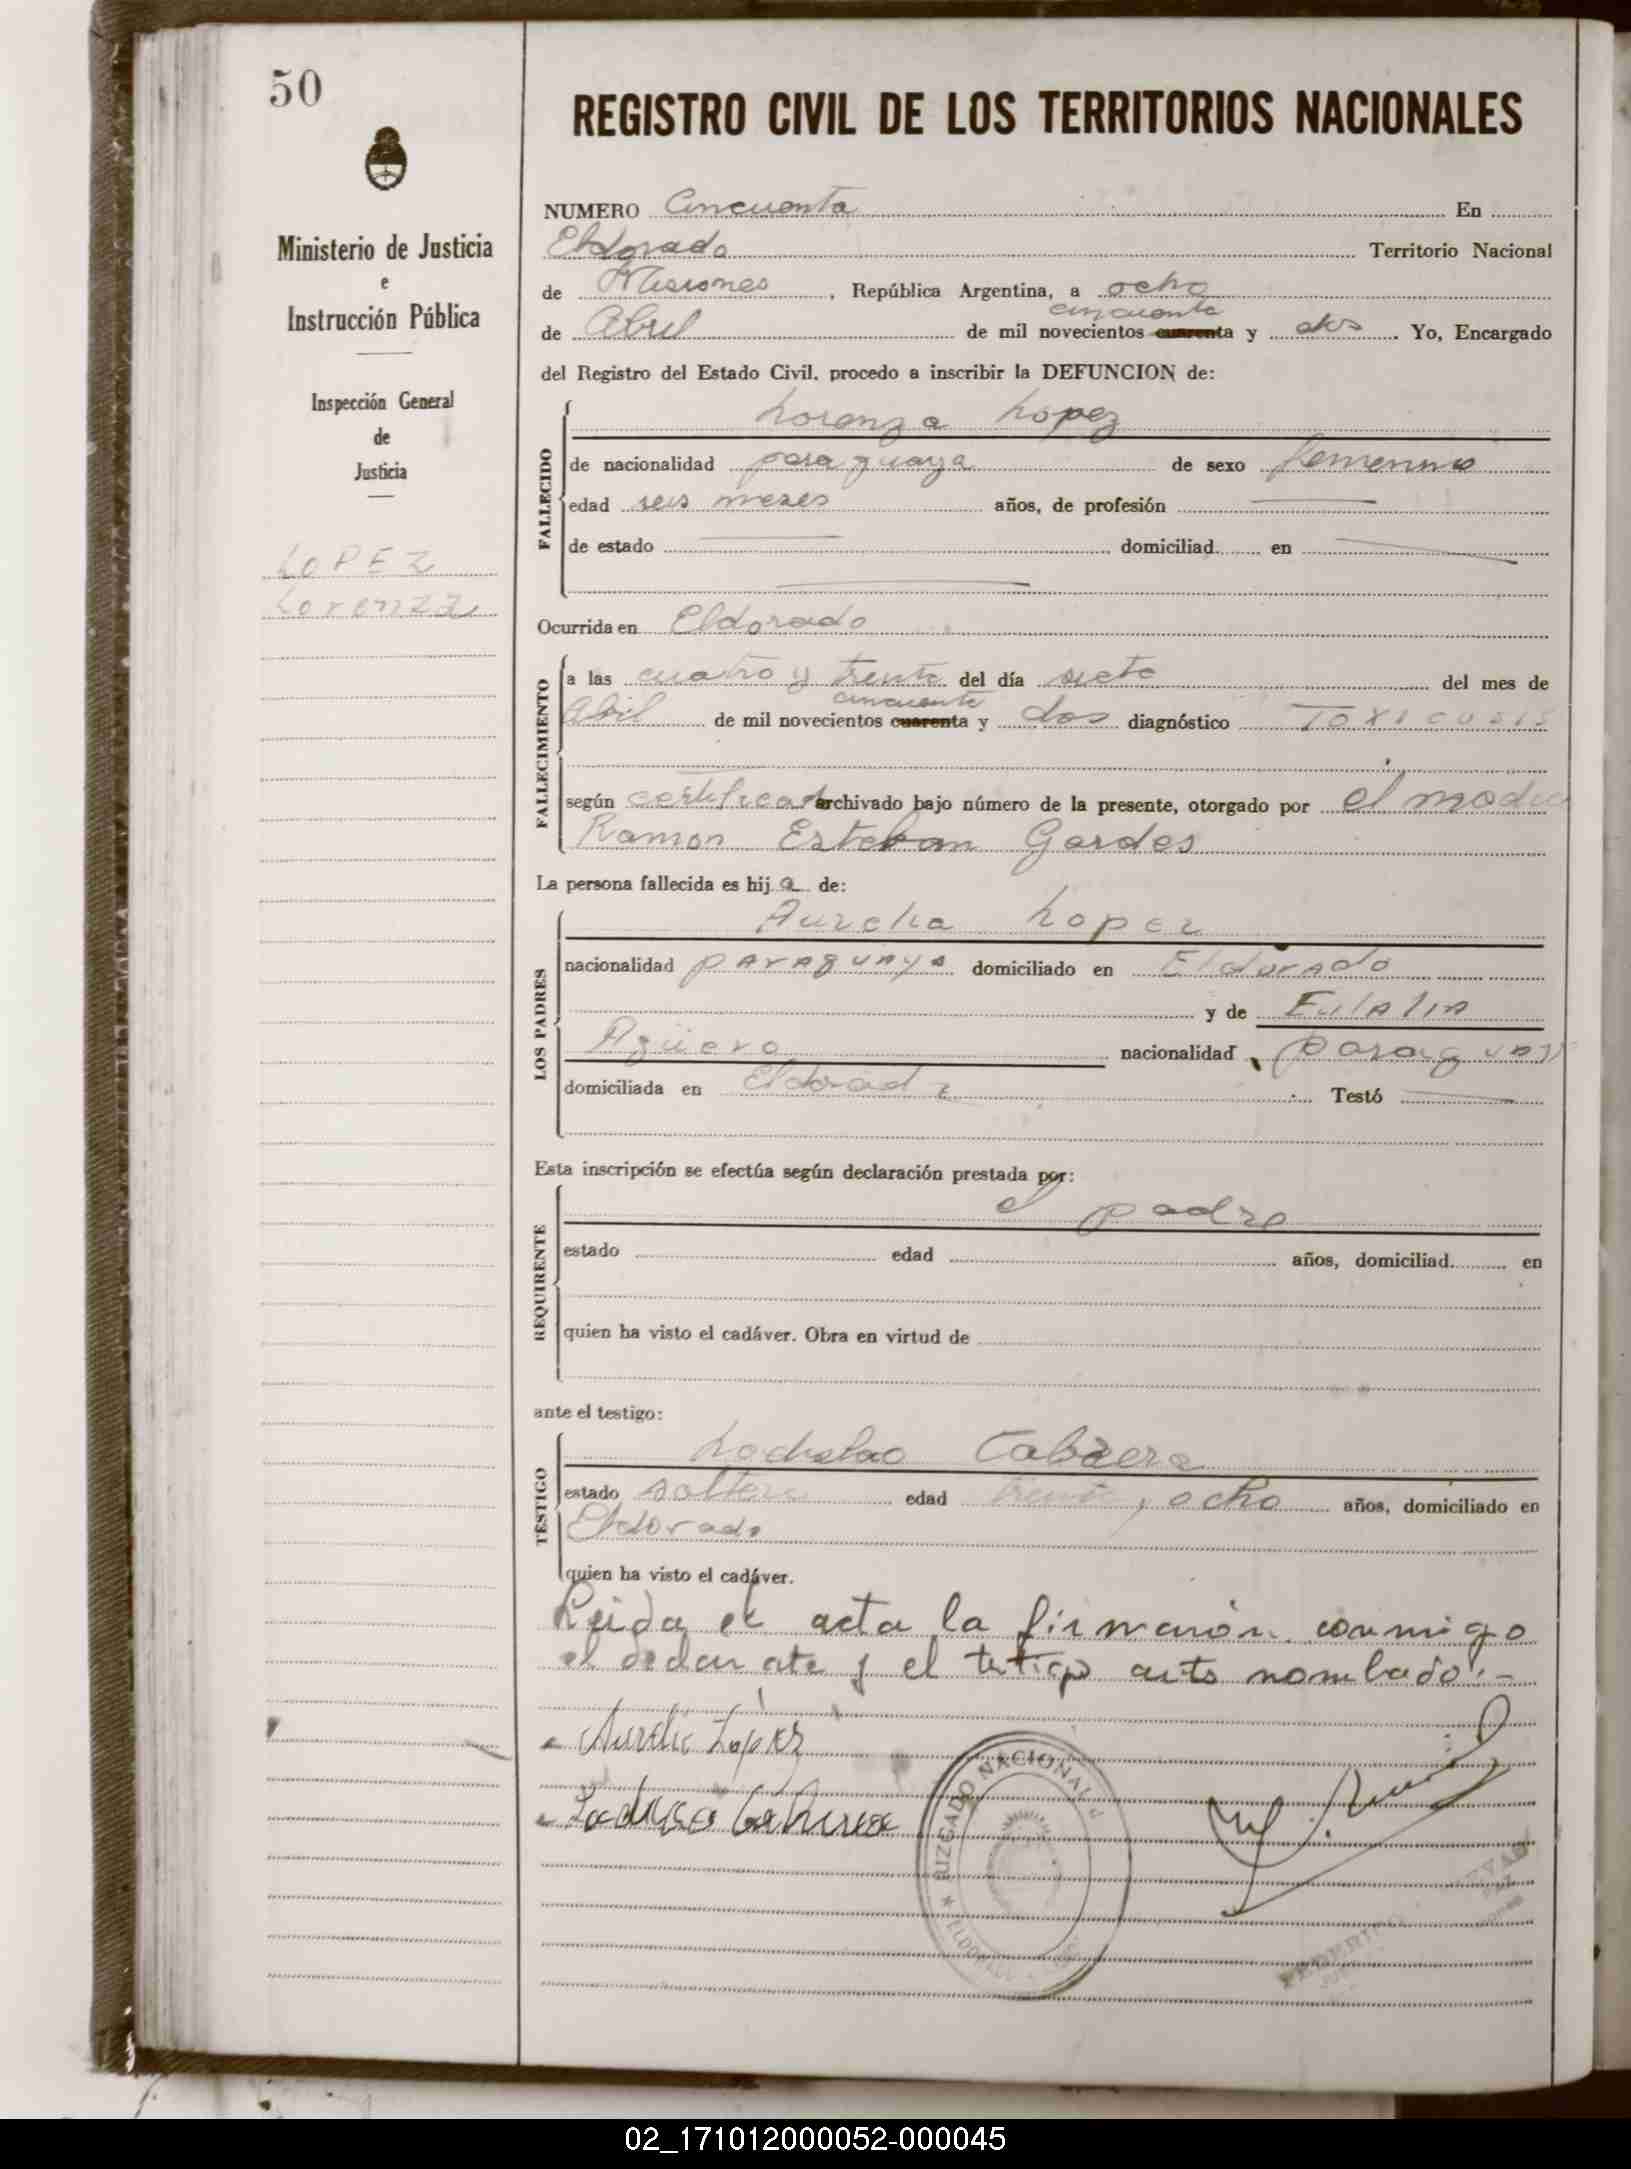 50
Ministerio de Justicia
e
Instrucción Pública
Inspección General
de
Justicia
LOPEZ
Lorenza
REGISTRO CIVIL DE LOS TERRITORIOS NACIONALES
NUMERO Cincuenta En
Eldorado Territorio Nacional
de Misiones, República Argentina, a ocho
cincuenta
de Abril de mil novecientos cuarenta y dos. Yo, Encargado
del Registro del Estado Civil, procedo a inscribir la DEFUNCION de:
FALLECIDO
Lorenza Lopez
de nacionalidad paraguaya de sexo femenino
edad seis meses años, de profesión
de estado domiciliad en
Ocurrida en Eldorado
FALLECIMIENTO
a las cuatro y treinta del día siete del mes de
cincuenta
Abril de mil novecientos cuarenta y dos diagnóstico Toxicosis
según certificado archivado bajo número de la presente, otorgado por el medico
Ramon Esteban Gardes
La persona fallecida es hija de:
LOS PADRES
Aurelio Lopez
nacionalidad paraguaya domiciliado en Eldorado
y de Eulalia
Agüero nacionalidad paraguay
domiciliada en Eldorado Testó
Esta inscripción se efectúa según declaración prestada por:
REQUIRENTE
el padre
estado edad años, domiciliad en
quien ha visto el cadáver. Obra en virtud de
ante el testigo:
TESTIGO
Ladislao Cabrera
estado soltero edad treinta y ocho años, domiciliado en
Eldorado
quien ha visto el cadáver.
Leida el acta la firmarón conmigo
el declarate y el testigo anto nombado.-
Aurelio López
Ladislao Cabrera
JUZGADO NACIONAL
ELDORADO
FEDERICO
02_171012000052-000045